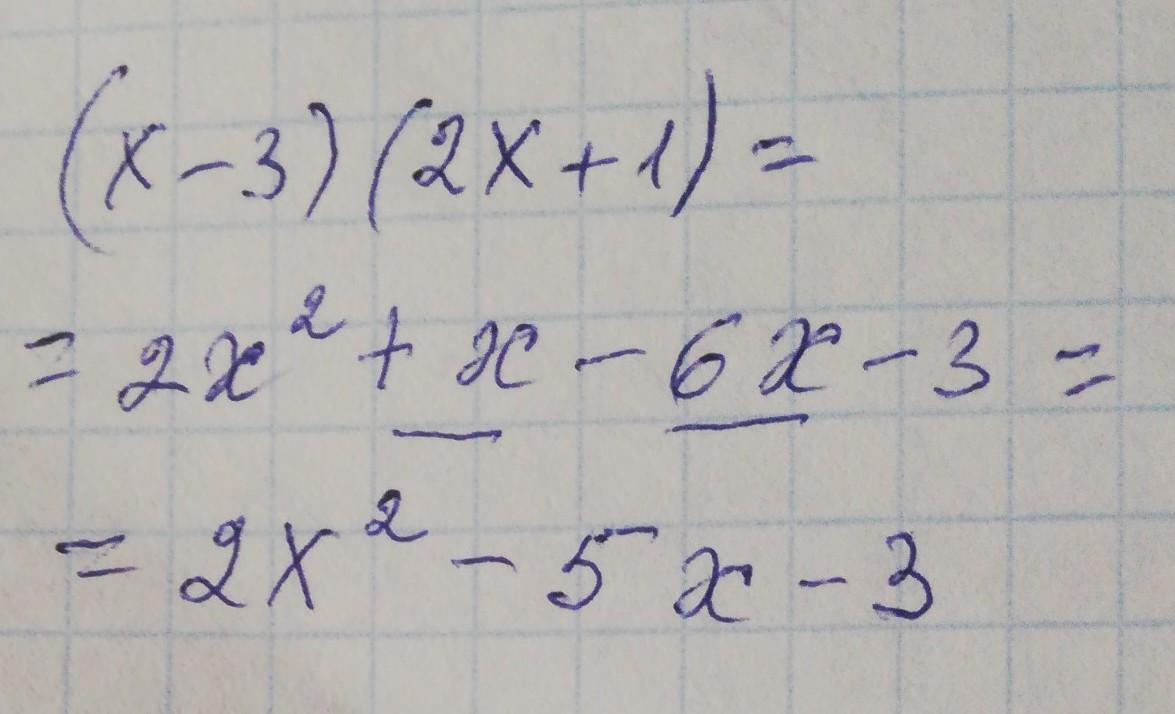 (x-3)(2x+1)=
=2x²+x-6x-3=
=2x²-5x-3